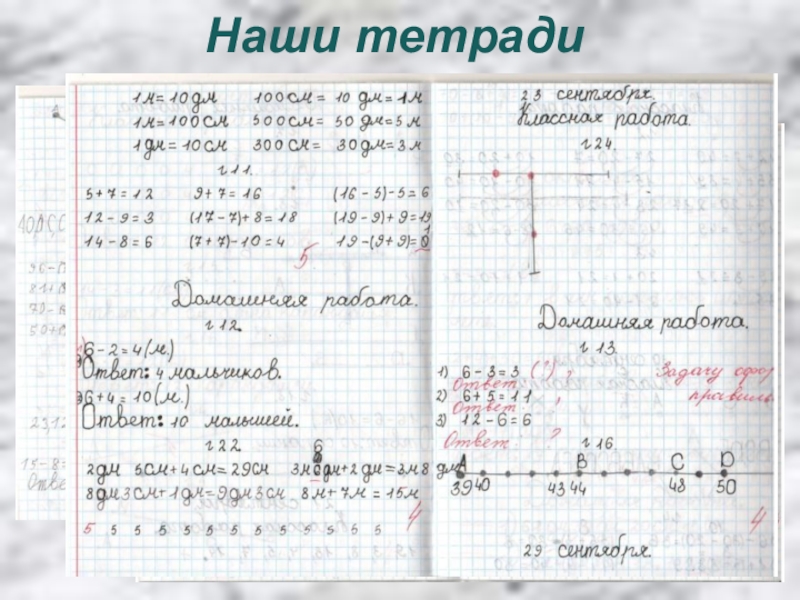 Наши тетради
1м = 10 дм 100 см = 10 дм = 1м
1м = 100 см 500 см = 50 дм = 5 м
1 дм = 10 см 300 см = 30 дм = 3 м
г 11.
5 + 7 = 12 9 + 7 = 16 (16 - 5) - 5 = 6
12 - 9 = 3 (17 - 7) + 8 = 18 (19 - 9) + 9 = 19
14 - 8 = 6 (7 + 7) - 10 = 4 19 - (9 + 9) =
5
Домашняя работа.
г 12.
6 - 2 = 4 (м.)
Ответ: 4 мальчиков.
6 + 4 = 10 (м.)
Ответ: 10 малышей.
г 22.
2 дм 5 см + 4 см = 29 см 3м дм + 2 дм = 3м 8 дм
8 дм 3 см + 1 дм = 9 дм 3 см 8 м + 7 м = 15 м
4
5 5 5 5 5 5 5 5 5 5 5 5
23 сентября.
Классная работа.
г 24.
Домашняя работа.
г 13.
1) 6 - 3 = 3 (?) Задачу
Ответ:
2) 6 + 5 = 11
Ответ:
3) 12 - 6 = 6
Ответ: ?
г 16.
A B C D
39 40 43 44 48 50
4
29 сентября.